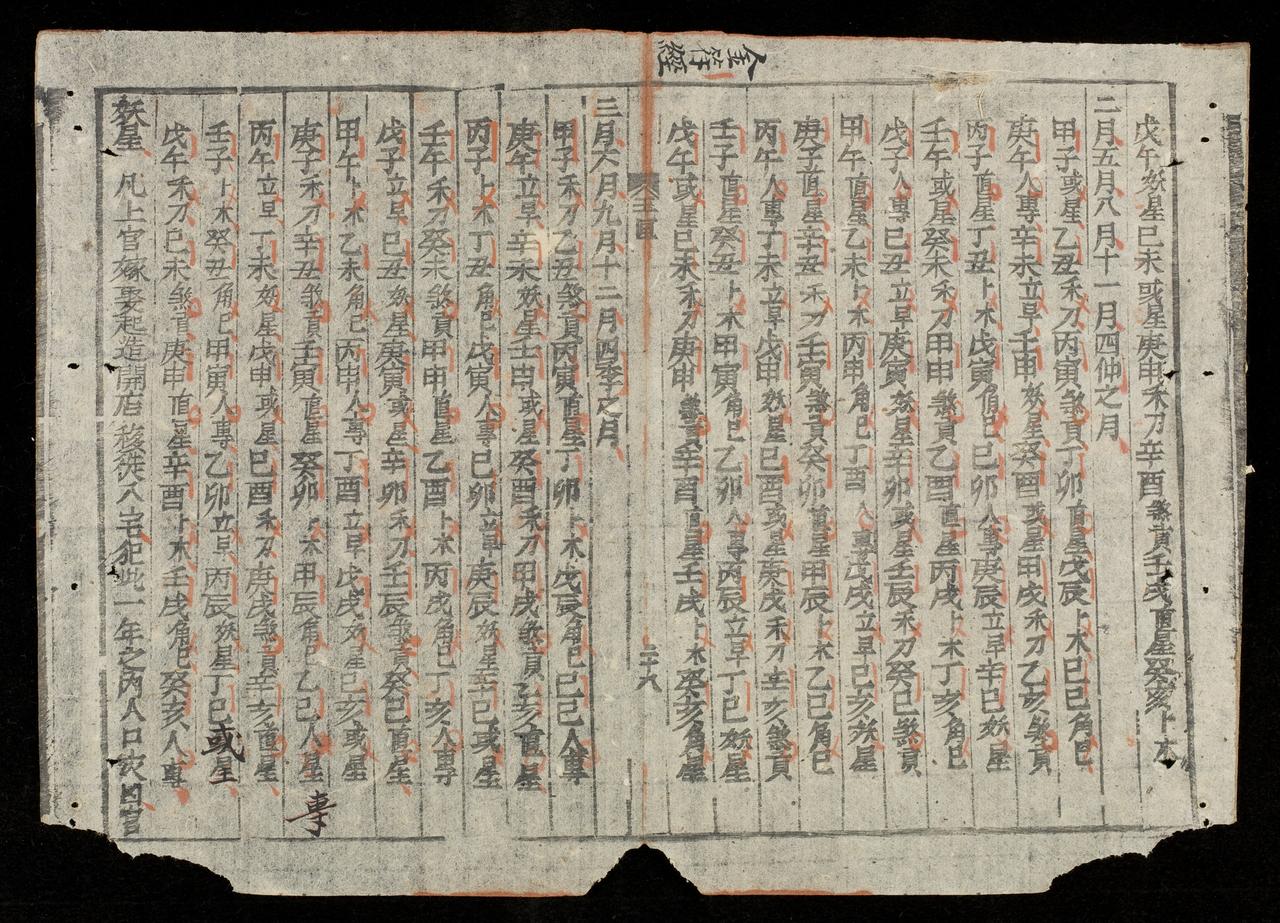 金符經
戊午妖星己未或星庚申禾刀辛酉煞貢壬戌直星癸亥卜木
二月五月八月十一月四仲之月
甲子或星乙丑禾刀丙寅煞貢丁卯直星戊辰卜木己巳角巳
庚午人專辛未立早壬申妖星癸酉或星甲戌禾刀乙亥煞貢
丙子直星丁丑卜木戊寅角巳己卯人專庚辰立早辛巳妖星
壬午或星癸未禾刀甲申煞貢乙酉直星丙戌卜木丁亥角巳
戊子人專己丑立早庚寅妖星辛卯或星壬辰禾刀癸巳煞貢
甲午直星乙未卜木丙申角巳丁酉人專戊戌立早己亥妖星
庚子直星辛丑禾刀壬寅煞貢癸卯直星甲辰卜木乙巳角巳
丙午人專丁未立早戊申妖星己酉或星庚戌禾刀辛亥煞貢
壬子直星癸丑卜木甲寅角巳乙卯人專丙辰立早丁巳妖星
戊午或星己未禾刀庚申煞貢辛酉直星壬戌卜木癸亥角星
二十八
三月六月九月十二月四季之月
甲子禾刀乙丑煞貢丙寅直星丁卯卜木戊辰角巳己巳人專
庚午立早辛未妖星壬申或星癸酉禾刀甲戌煞貢乙亥直星
丙子卜木丁丑角巳戊寅人專己卯立早庚辰妖星辛巳或星
壬午禾刀癸未煞貢甲申直星乙酉卜木丙戌角巳丁亥人專
戊子立早己丑妖星庚寅或星辛卯禾刀壬辰煞貢癸巳直星
甲午卜木乙未角巳丙申人專丁酉立早戊戌妖星己亥或星
庚子禾刀辛丑煞貢壬寅直星癸卯卜木甲辰角巳乙巳人星
專
丙午立早丁未妖星戊申或星己酉禾刀庚戌煞貢辛亥直星
壬子卜木癸丑角巳甲寅人專乙卯立早丙辰妖星丁巳或星
戊午禾刀己未煞貢庚申直星辛酉卜木壬戌角巳癸亥人專
妖星 凡上官嫁娶起造開店移徙入宅犯此一年之內人口灾凶官